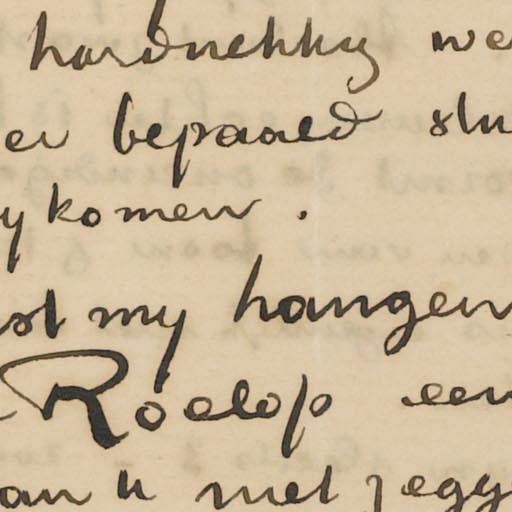 hardnekkig we
er bepaald slu
y komen .
st my hangen
Roelof een
an u met zegg